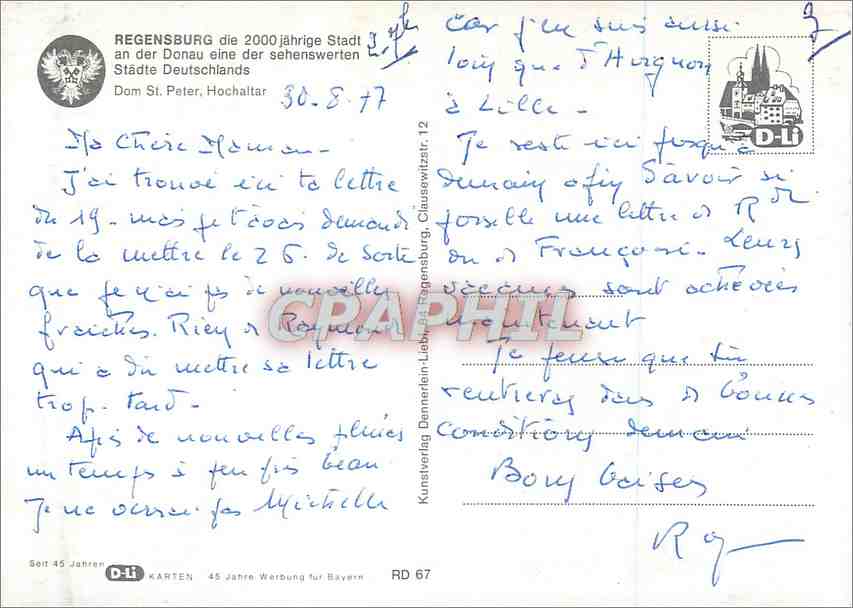 REGENSBURG die 2000 jährige Stadt
an der Donau eine der sehenswerten
Städte Deutschlands
Dom St. Peter, Hochaltar
30.8.77
Ma Chère Maman -
J'ai trouvé ici ta lettre
du 19 - mais je t'avais demandé
de la mettre le 26. de sorte
que je n'ai pas de nouvelles
fraiches. Rien de Raymond
qui a dû mettre sa lettre
trop tard -
Après de nouvelles pluies
un temps à peu près beau
Je ne verrai pas Michelle
car j'en suis aussi
loin que d'Avignon
à Lille -
Je reste ici jusqu'à
demain afin d'avoir si
possible une lettre de
ou de Françoise. Leurs
vacances sont achevées
maintenant
Je pense que tu
rentreras dans de bonnes
conditions demain
Bons baisers
Kunstverlag Dennerlein-Liebl, 84 Regensburg, Clausewitzstr. 12
D-Li
CPAPHIL
Seit 45 Jahren D-Li KARTEN 45 Jahre Werbung für Bayern RD 67